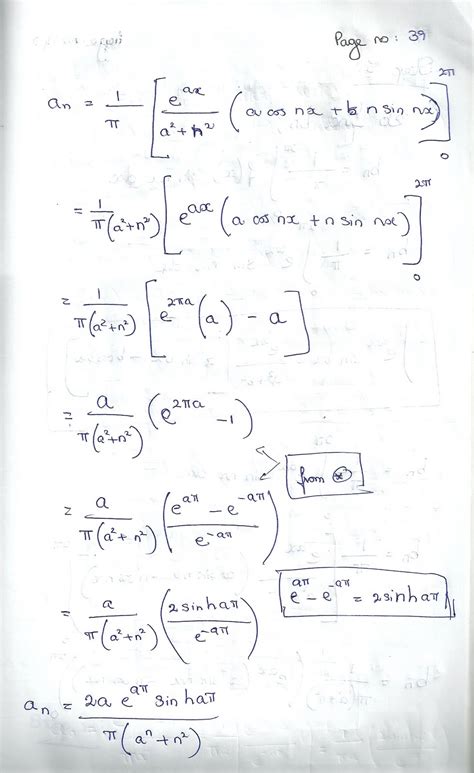 Page no: 39
aₙ = 1/π [ e^{ax}/(a²+n²) (a cos nx + n sin nx) ]₀^{2π}
= 1/π(a²+n²) [ e^{ax} (a cos nx + n sin nx) ]₀^{2π}
= 1/π(a²+n²) [ e^{2πa} (a) - a ]
= a/π(a²+n²) (e^{2πa} - 1)
from ⊛
= a/π(a²+n²) ( (e^{aπ} - e^{-aπ})/e^{-aπ} )
e^{aπ} - e^{-aπ} = 2sinhaπ
= a/π(a²+n²) ( 2sinhaπ/e^{-aπ} )
aₙ = 2a e^{aπ} sinhaπ / π(aⁿ+n²)